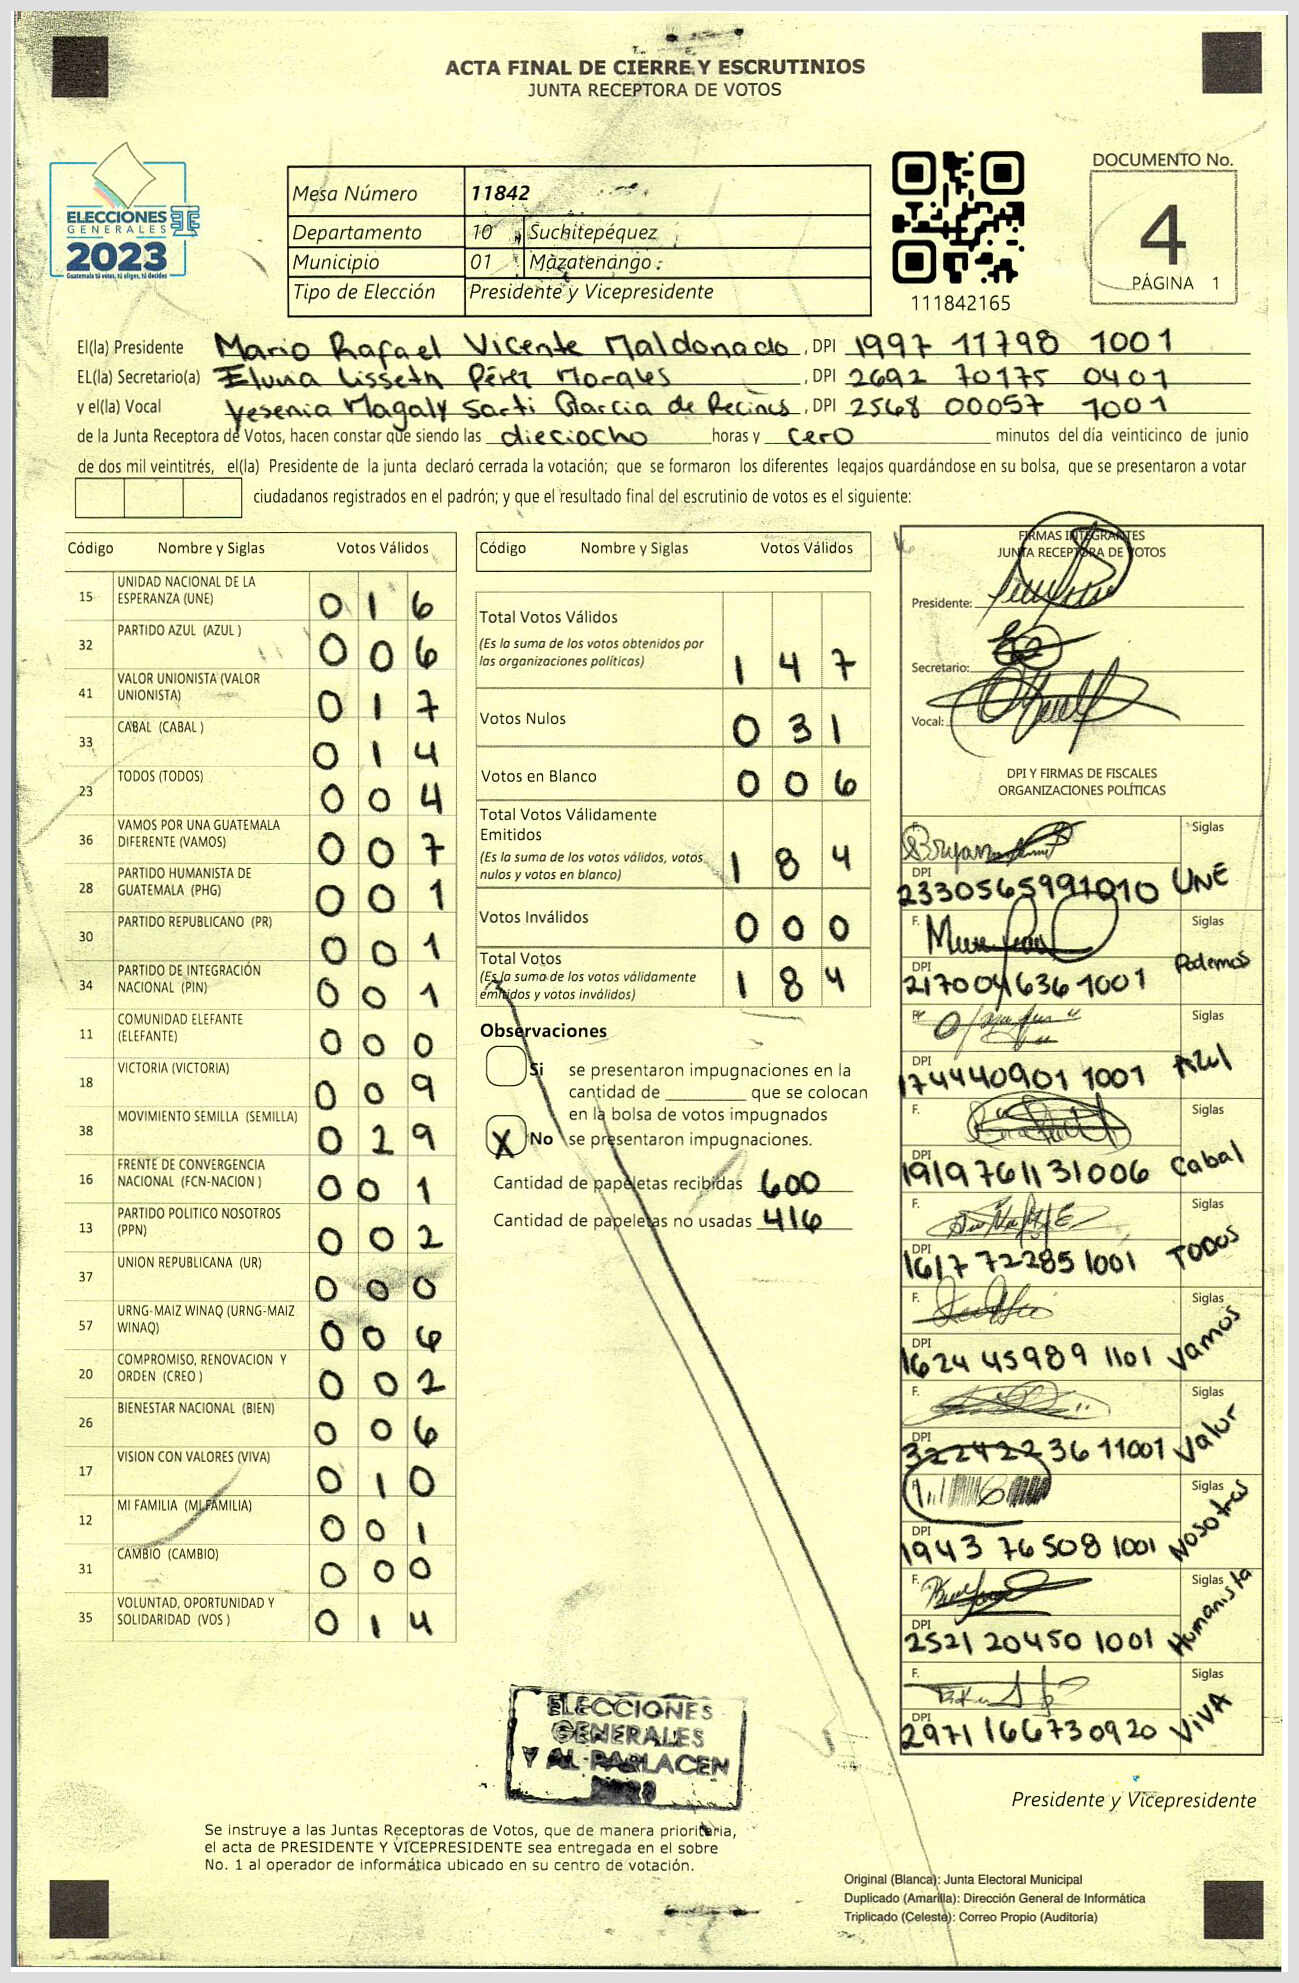 ACTA FINAL DE CIERRE Y ESCRUTINIOS
JUNTA RECEPTORA DE VOTOS
ELECCIONES
GENERALES
2023
Guatemala tú votas, tú eliges, tú decides
Mesa Número 11842
Departamento 10 Suchitepéquez
Municipio 01 Mazatenango
Tipo de Elección Presidente y Vicepresidente
111842165
DOCUMENTO No.
4
PÁGINA 1
El(la) Presidente Mario Rafael Vicente Maldonado, DPI 1997 11798 1001
EL(la) Secretario(a) Elvira Lisseth Pérez Morales, DPI 2692 70175 0401
y el(la) Vocal Yesenia Magaly Sarti Garcia de Recinos, DPI 2568 00057 1001
de la Junta Receptora de Votos, hacen constar que siendo las dieciocho horas y cero minutos del día veinticinco de junio
de dos mil veintitrés, el(la) Presidente de la junta declaró cerrada la votación; que se formaron los diferentes legajos quardándose en su bolsa, que se presentaron a votar
ciudadanos registrados en el padrón; y que el resultado final del escrutinio de votos es el siguiente:
Código Nombre y Siglas Votos Válidos
15 UNIDAD NACIONAL DE LA ESPERANZA (UNE) 016
32 PARTIDO AZUL (AZUL ) 006
41 VALOR UNIONISTA (VALOR UNIONISTA) 017
33 CABAL (CABAL ) 014
23 TODOS (TODOS) 004
36 VAMOS POR UNA GUATEMALA DIFERENTE (VAMOS) 007
28 PARTIDO HUMANISTA DE GUATEMALA (PHG) 001
30 PARTIDO REPUBLICANO (PR) 001
34 PARTIDO DE INTEGRACIÓN NACIONAL (PIN) 001
11 COMUNIDAD ELEFANTE (ELEFANTE) 000
18 VICTORIA (VICTORIA) 009
38 MOVIMIENTO SEMILLA (SEMILLA) 029
16 FRENTE DE CONVERGENCIA NACIONAL (FCN-NACION ) 001
13 PARTIDO POLITICO NOSOTROS (PPN) 002
37 UNION REPUBLICANA (UR) 000
57 URNG-MAIZ WINAQ (URNG-MAIZ WINAQ) 006
20 COMPROMISO, RENOVACION Y ORDEN (CREO ) 002
26 BIENESTAR NACIONAL (BIEN) 006
17 VISION CON VALORES (VIVA) 010
12 MI FAMILIA (MI FAMILIA) 001
31 CAMBIO (CAMBIO) 000
35 VOLUNTAD, OPORTUNIDAD Y SOLIDARIDAD (VOS ) 014
Código Nombre y Siglas Votos Válidos
Total Votos Válidos
(Es la suma de los votos obtenidos por
las organizaciones políticas) 147
Votos Nulos 031
Votos en Blanco 006
Total Votos Válidamente
Emitidos
(Es la suma de los votos válidos, votos
nulos y votos en blanco) 184
Votos Inválidos 000
Total Votos
(Es la suma de los votos válidamente
emitidos y votos inválidos) 184
Observaciones
Si se presentaron impugnaciones en la
cantidad de ________ que se colocan
en la bolsa de votos impugnados
X No se presentaron impugnaciones.
Cantidad de papeletas recibidas 600
Cantidad de papeletas no usadas 416
FIRMAS INTEGRANTES
JUNTA RECEPTORA DE VOTOS
Presidente:
Secretario:
Vocal:
DPI Y FIRMAS DE FISCALES
ORGANIZACIONES POLÍTICAS
F. Bryan Siglas
DPI 2330565991010 UNE
F. Siglas
DPI 217004636 1001 Podemos
F. Siglas
DPI 174440901 1001 Azul
F. Siglas
DPI 1919761131006 Cabal
F. Siglas
DPI 1617 72285 1001 TODOS
F. Siglas
DPI 1624 45989 1101 Vamos
F. Siglas
DPI 322422236 11001 Valor
F. Siglas
DPI 1943 76508 1001 Nosotros
F. Siglas
DPI 2521 20450 1001 Humanista
F. Siglas
DPI 2971 166730920 VIVA
ELECCIONES
GENERALES
Y AL PARLACEN
Presidente y Vicepresidente
Se instruye a las Juntas Receptoras de Votos, que de manera prioritaria,
el acta de PRESIDENTE Y VICEPRESIDENTE sea entregada en el sobre
No. 1 al operador de informática ubicado en su centro de votación.
Original (Blanca): Junta Electoral Municipal
Duplicado (Amarilla): Dirección General de Informática
Triplicado (Celeste): Correo Propio (Auditoría)